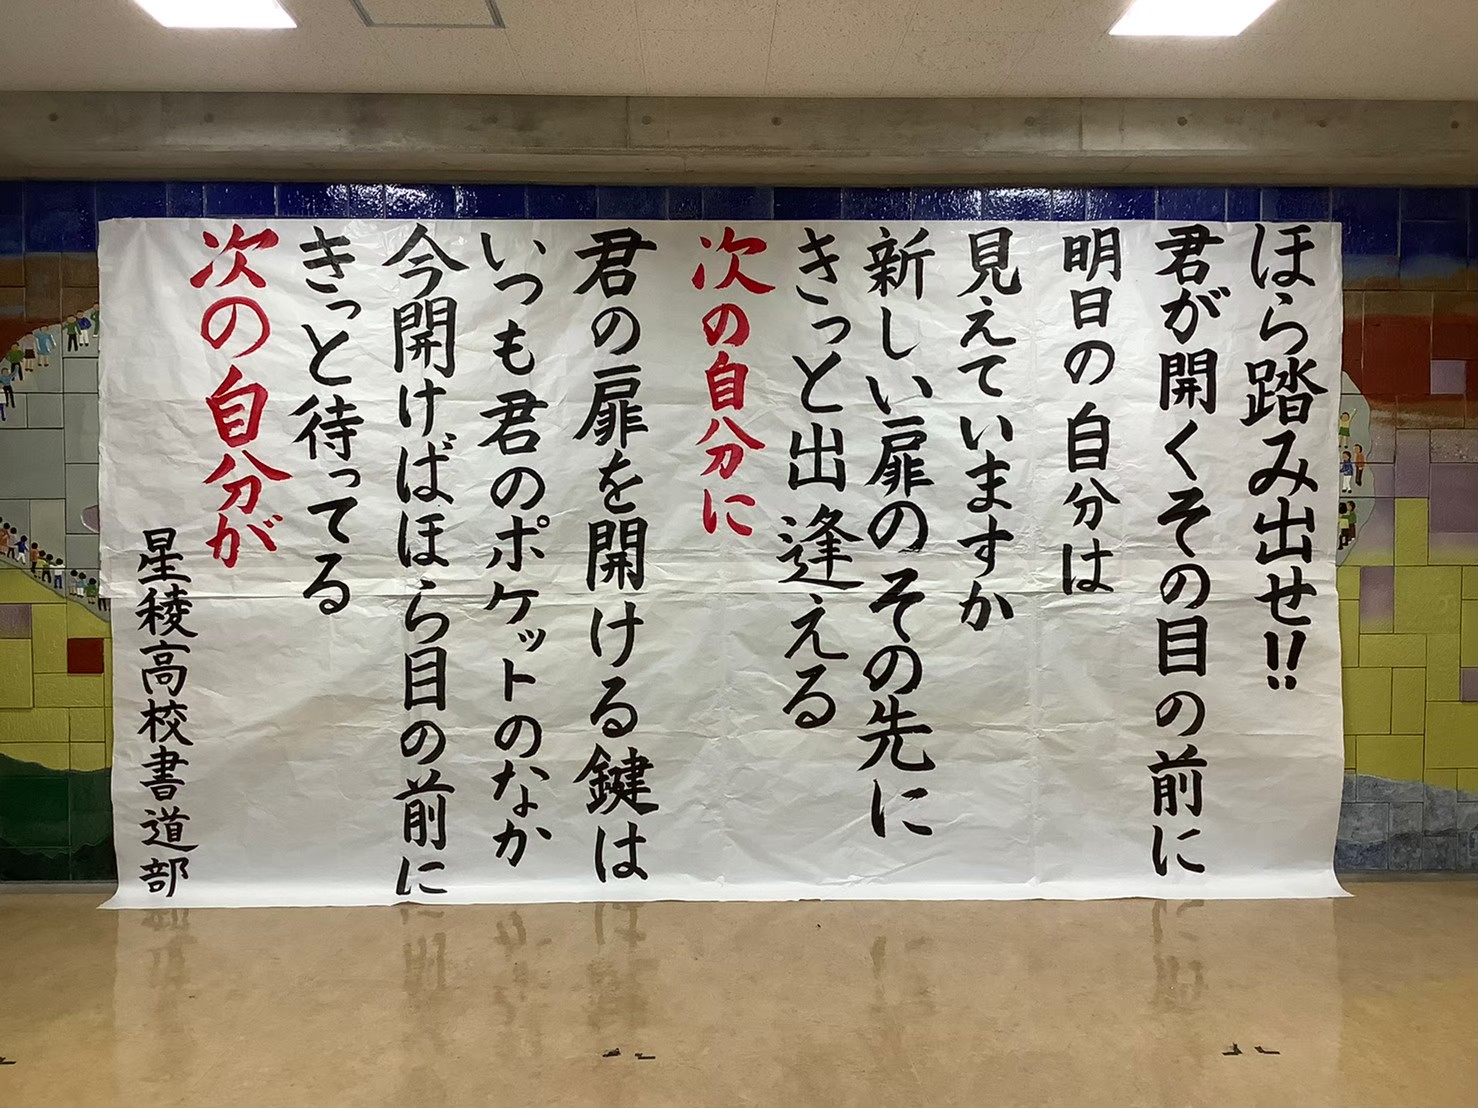 ほら踏み出せ!!
君が開くその目の前に
明日の自分は
見えていますか
新しい扉のその先に
きっと出逢える
次の自分に
君の扉を開ける鍵は
いつも君のポケットのなか
今開けばほら目の前に
きっと待ってる
次の自分が
星稜高校書道部